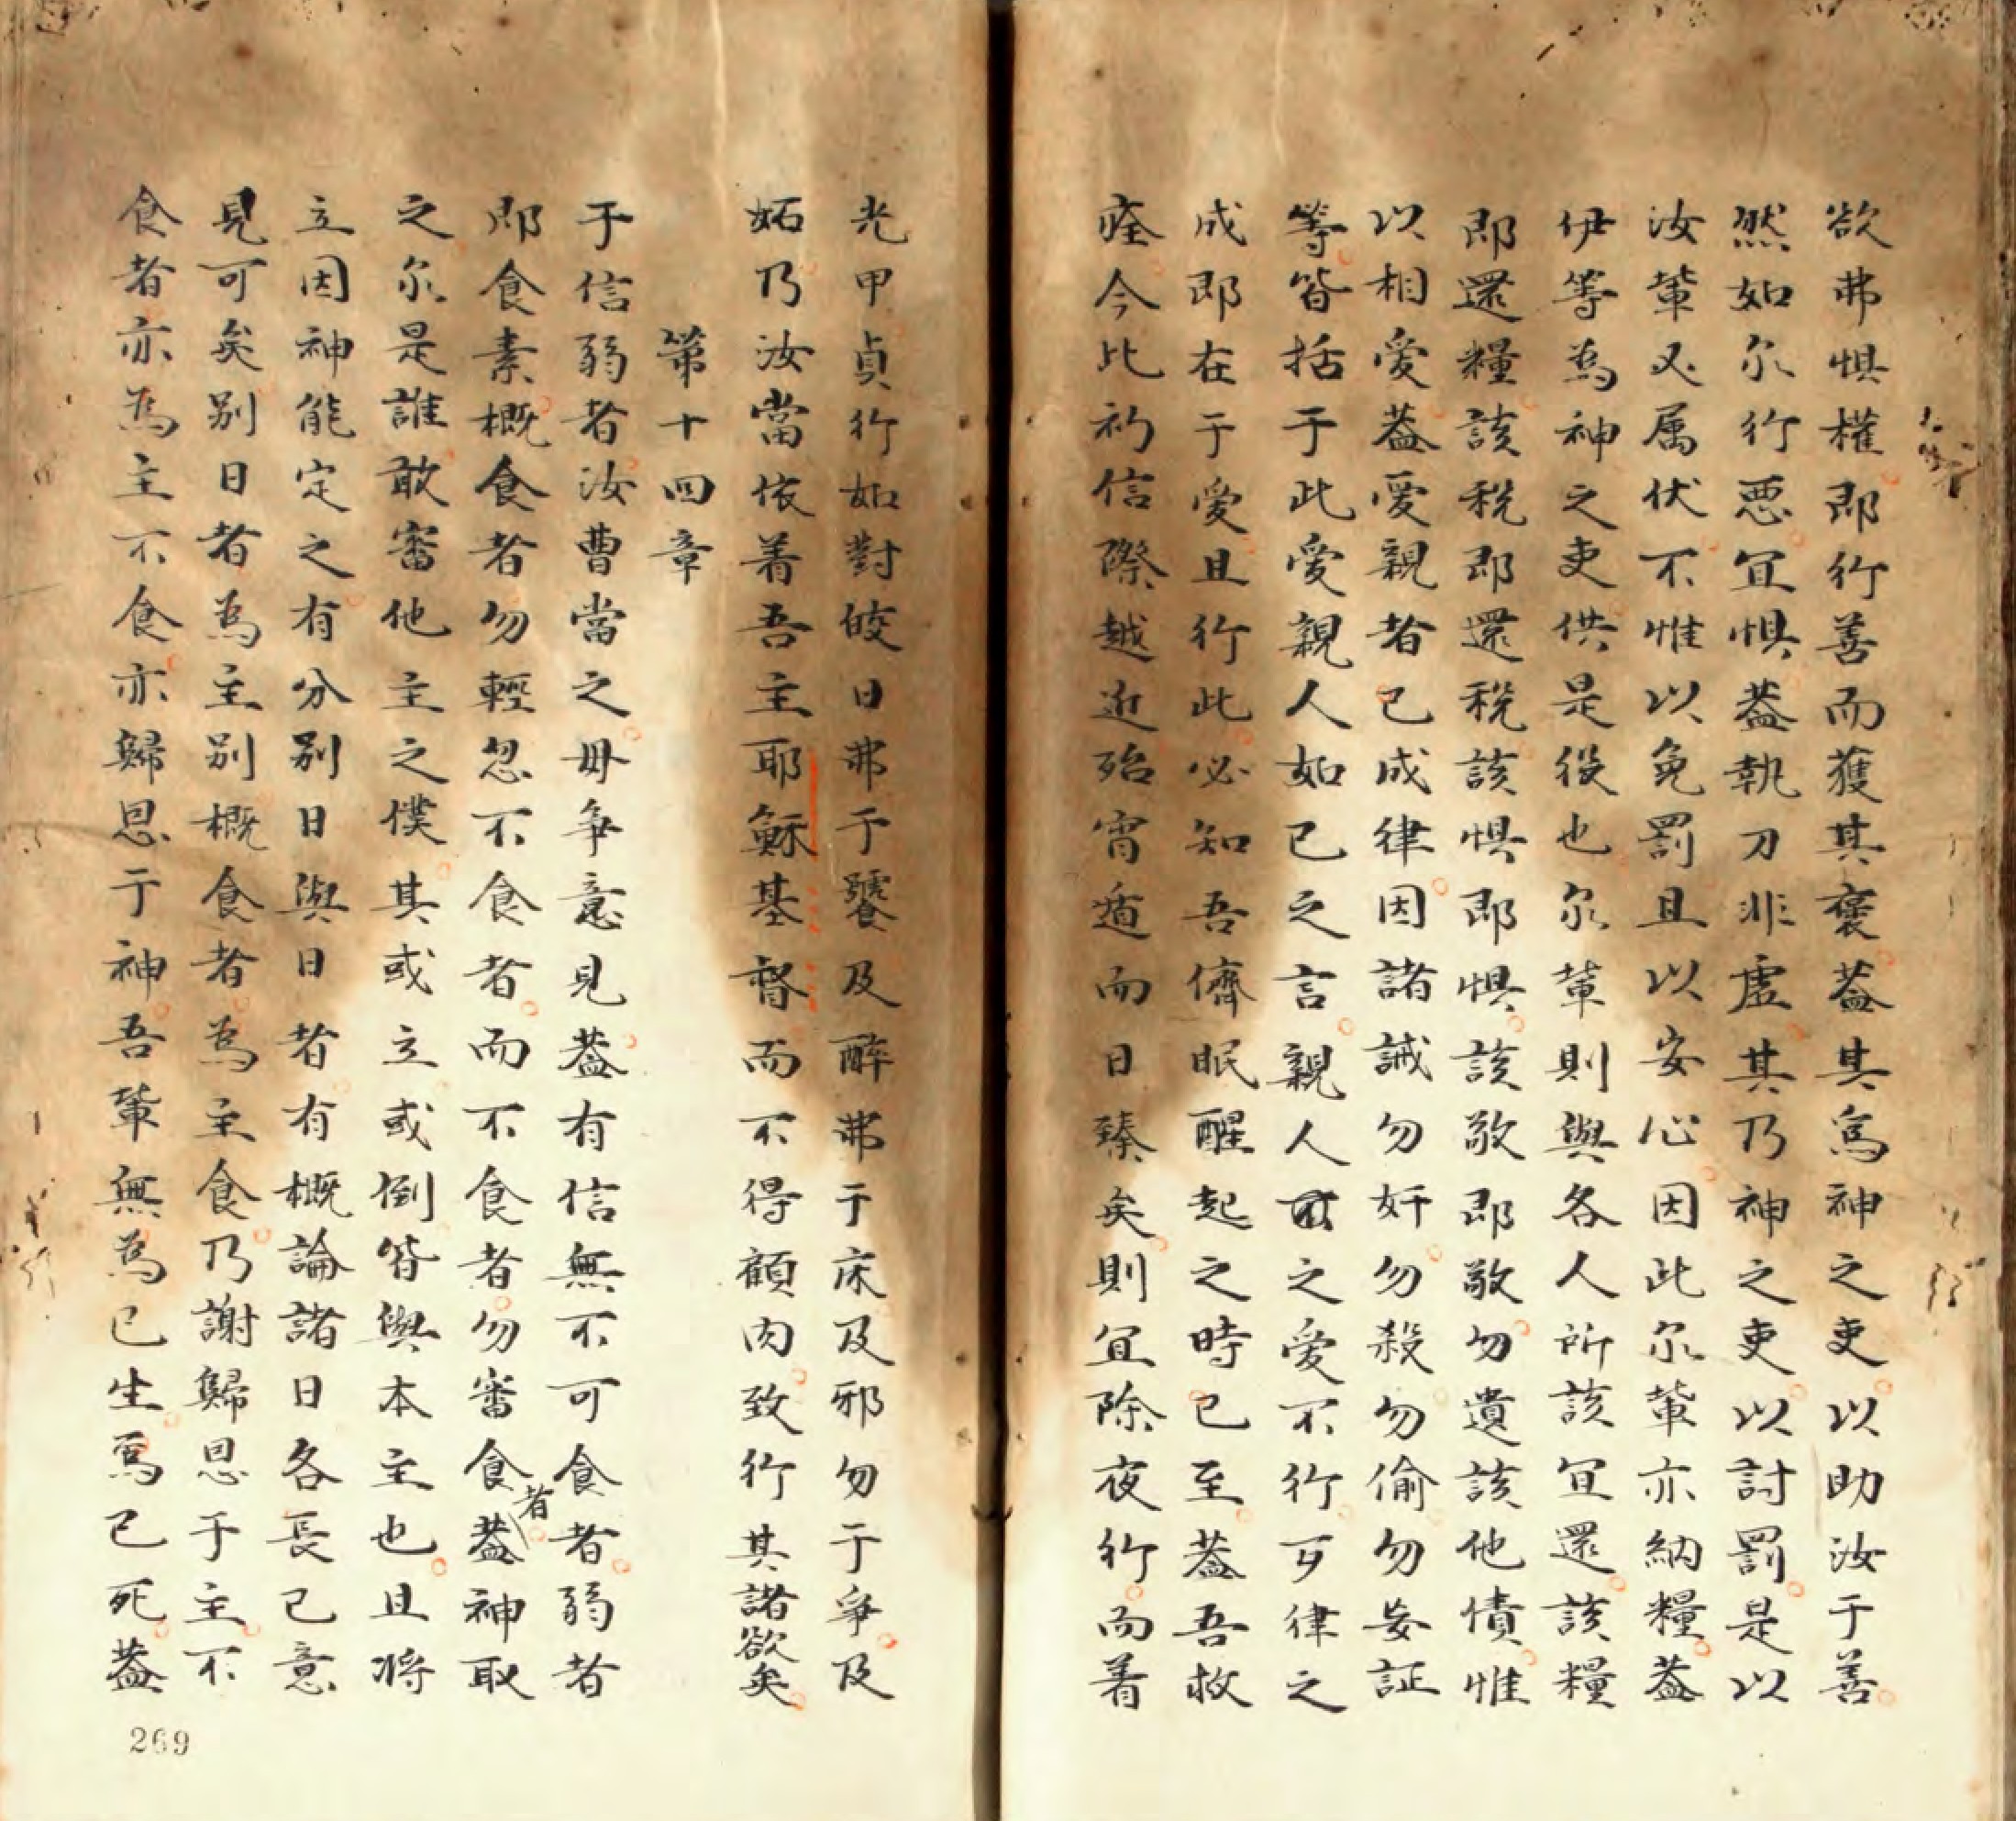 欲弗惧權即行善而獲其褒葢其爲神之吏以助汝于善
然如尔行恶宜惧葢執刀非虛其乃神之吏以討罰是以
汝軰必属伏不惟以免罰且以安心因此尔軰亦納糧葢
伊等為神之吏供是役也尔軰則與各人所該宜還該糧
即還糧該稅即還稅該惧即惧該敬即敬勿遺該他債惟
以相愛葢愛親者已成律因諸誡勿奸勿殺勿偷勿妄証
等皆括于此愛親人如己之言親人之愛不行丂律之
成即在于愛且行此必知吾儕眠醒起之時已至葢吾救
痊今比初信際越近殆宵遁而日臻矣則宜除夜行而着
光甲貞行如對皎日弗于饕及醉弗于床及邪勿于爭及
妬乃汝當依着吾主耶穌基督而不得顧肉致行其諸欲矣
第十四章
于信弱者汝曹當之毋争意見葢有信無不可食者弱者
即食素概食者勿輕忽不食者而不食者勿審食者葢神取
之尔是誰敢審他主之僕其或立或倒皆與本主也且将
立因神能定之有分别日與日者有概論諸日各長己意
見可矣别日者為主别概食者為主食乃謝歸恩于主不
食者亦為主不食亦歸恩于神吾軰無為己生焉己死葢
269